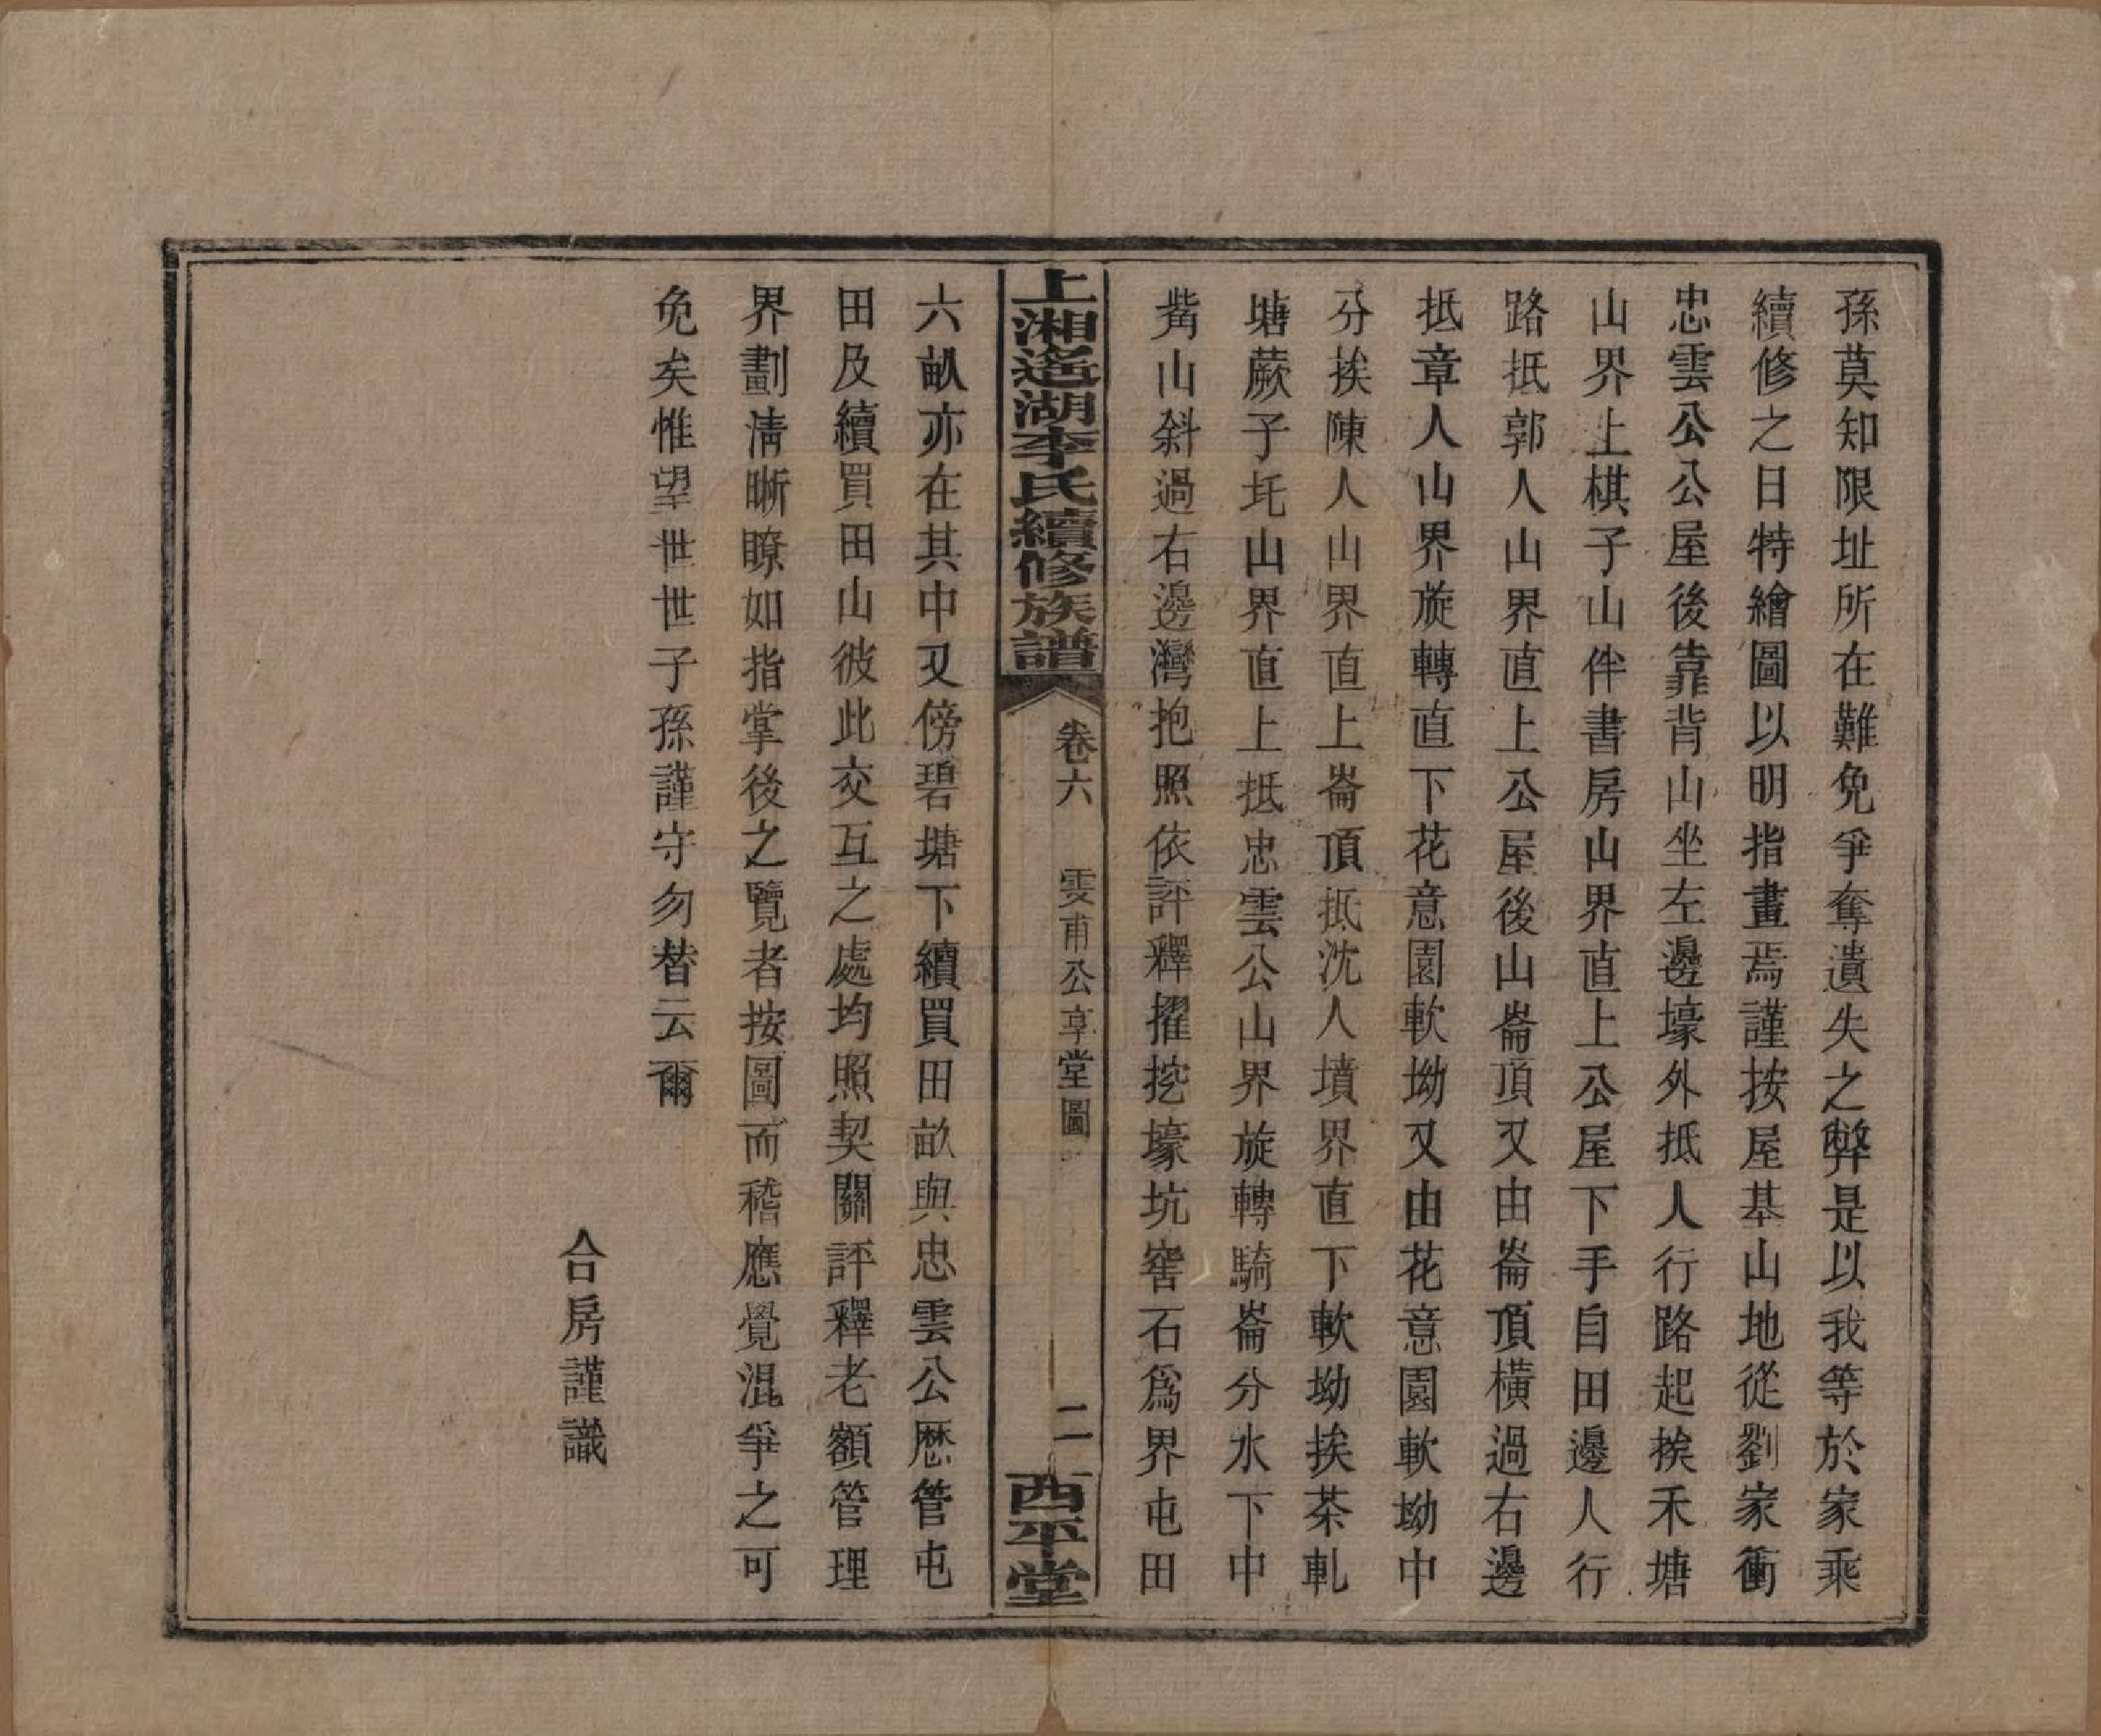 孫莫知限址所在難免爭奪遺失之弊是以我等於家乘
續修之日特繪圖以明指畫焉謹按屋基山地從劉家衝
忠雲公公屋後靠背山坐左邊壕外抵人行路起挨禾塘
山界上棋子山伴書房山界直上公屋下手自田邊人行
路抵郭人山界直上公屋後山崙頂又由崙頂橫過右邊
抵章人山界旋轉直下花意園軟坳又由花意園軟坳中
分挨陳人山界直上崙頂抵沈人墳界直下軟坳挨茶軋
塘蕨子圫山界直上抵忠雲公山界旋轉騎崙分水下中
觜山斜過右邊灣抱照依評釋擢挖壕坑窖石為界屯田
上湘遙湖李氏續修族譜
卷六 雯甫公享堂圖
二
西平堂
六畝亦在其中又傍碧塘下續買田畝與忠雲公厯管屯
田及續買田山彼此交互之處均照契關評釋老額管理
界劃清晰瞭如指掌後之覽者按圖而稽應覺混爭之可
免矣惟望世世子孫謹守勿替云爾
合房謹識